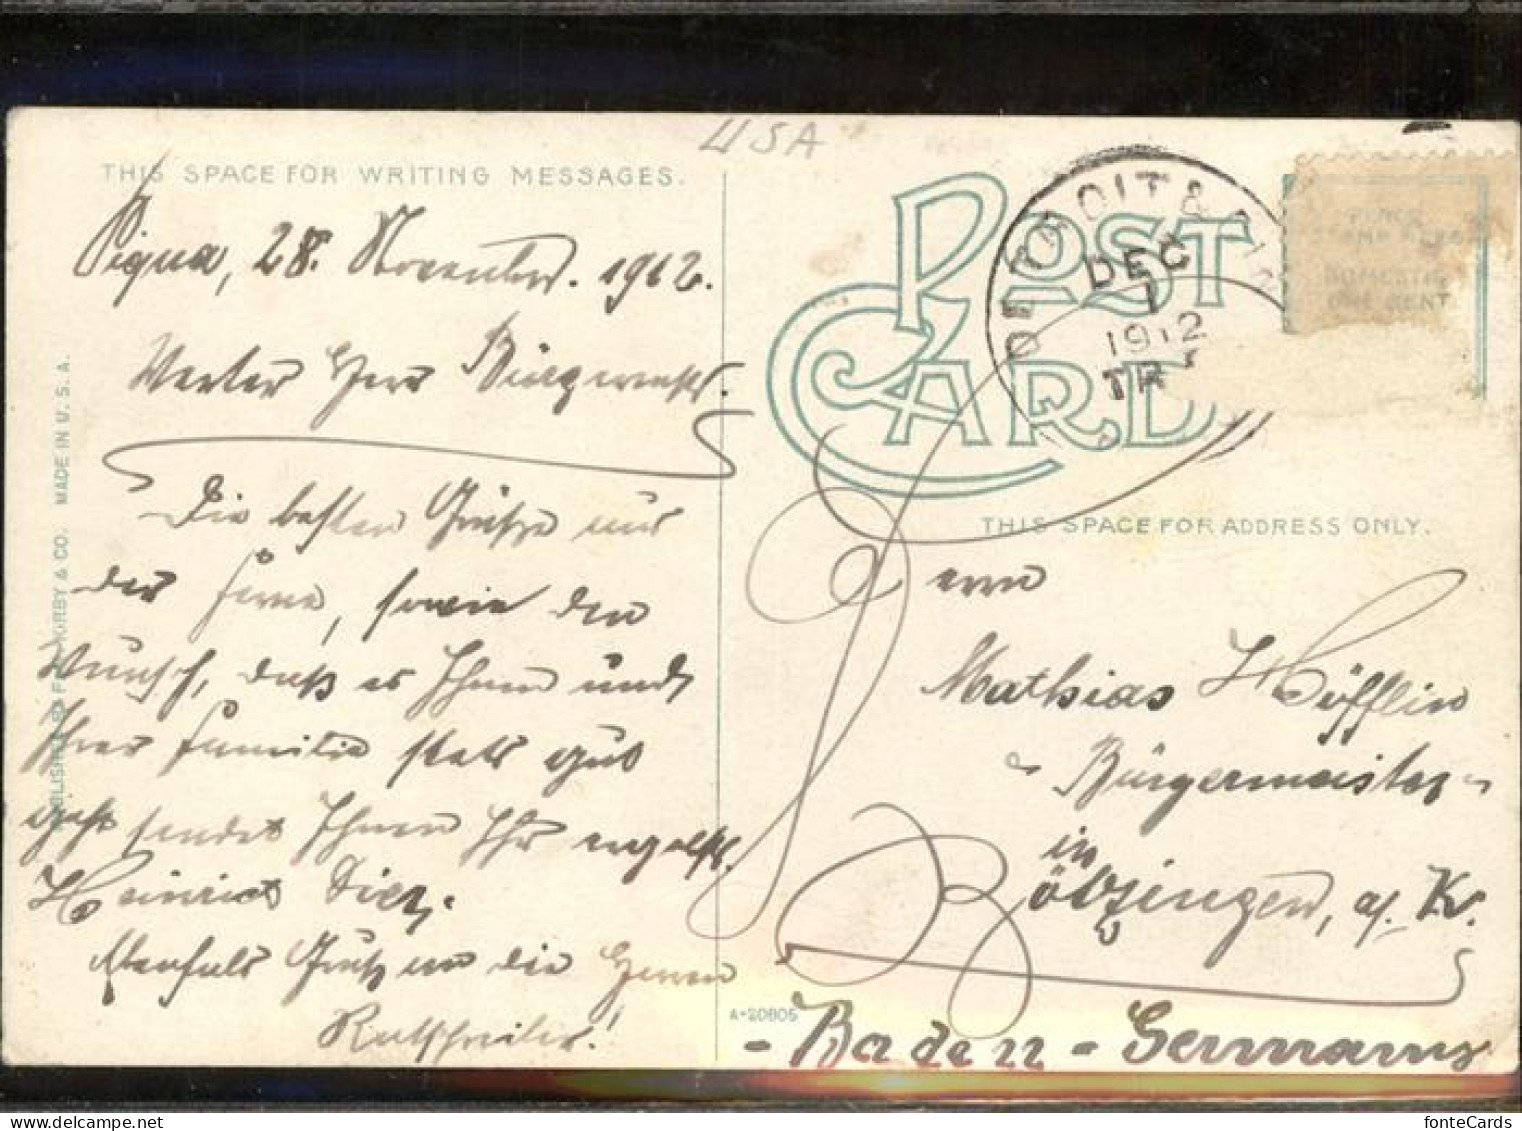 USA
THIS SPACE FOR WRITING MESSAGES.
Piqua, 28. November. 1912.
Werter Herr Bürgermstr.
Die besten Grüße aus
der Ferne, sowie den
Wunsch, daß es Ihnen und
Ihrer Familie stets gut
geht sendet Ihnen Ihr ergebst.
Heinrich Dier.
Ebenfals Gruß an die Herren
Ratschreiber!
MADE IN U. S. A.
KIRBY & CO.
POST CARD
DETROIT &
DEC
1
1912
TR
PLACE
STAMP HERE
DOMESTIC
ONE CENT
THIS SPACE FOR ADDRESS ONLY.
Herrn
Mathias Höfflin
- Bürgermeister -
in
Bötzingen, a/. K.
- Baden - Germany
A-20805
fonteCards